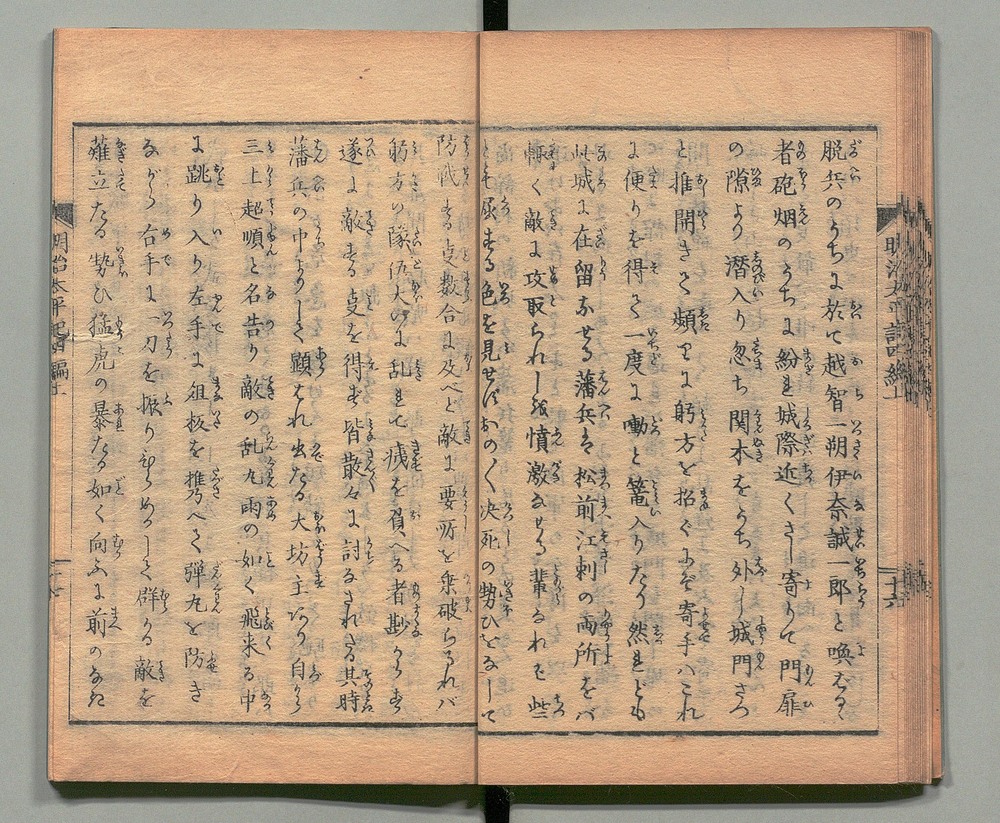 脱兵のうちに於て越智一朔伊奈誠一郎と喚はるゝ
者砲烟のうちに紛れ城際近くさし寄りて門扉
の隙より潜入り忽ち関木をうち外し城門さつ
と推開きて頻りに躬方を招くにぞ寄手ハこれ
に便りを得て一度に動と篭入りたり然れども
此城に在留なせる藩兵は松前江刺の両所をバ
輙く敵に攻取られしを憤激なせる輩なれバ些
とも屈する色を見せずおの〳〵决死の勢ひをなして
防戦する事数合に及べど敵に要所を乗破られバ
躬方の隊伍大いに乱れて痍を負へる者尠からず
遂に敵する事を得ず皆散々に討なされる其時
藩兵の中よりして顕はれ出たる大坊主あり自から
三上超順と名告り敵の乱丸雨の如く飛来る中
に跳り入り左手に俎板を携へて弾丸を防き
ながら右手に刀を振りひらめかして群がる敵を
薙立たる勢ひ猛虎の暴たる如く向ふに前のなき
明治太平記四編上
十六
明治太平記四編上